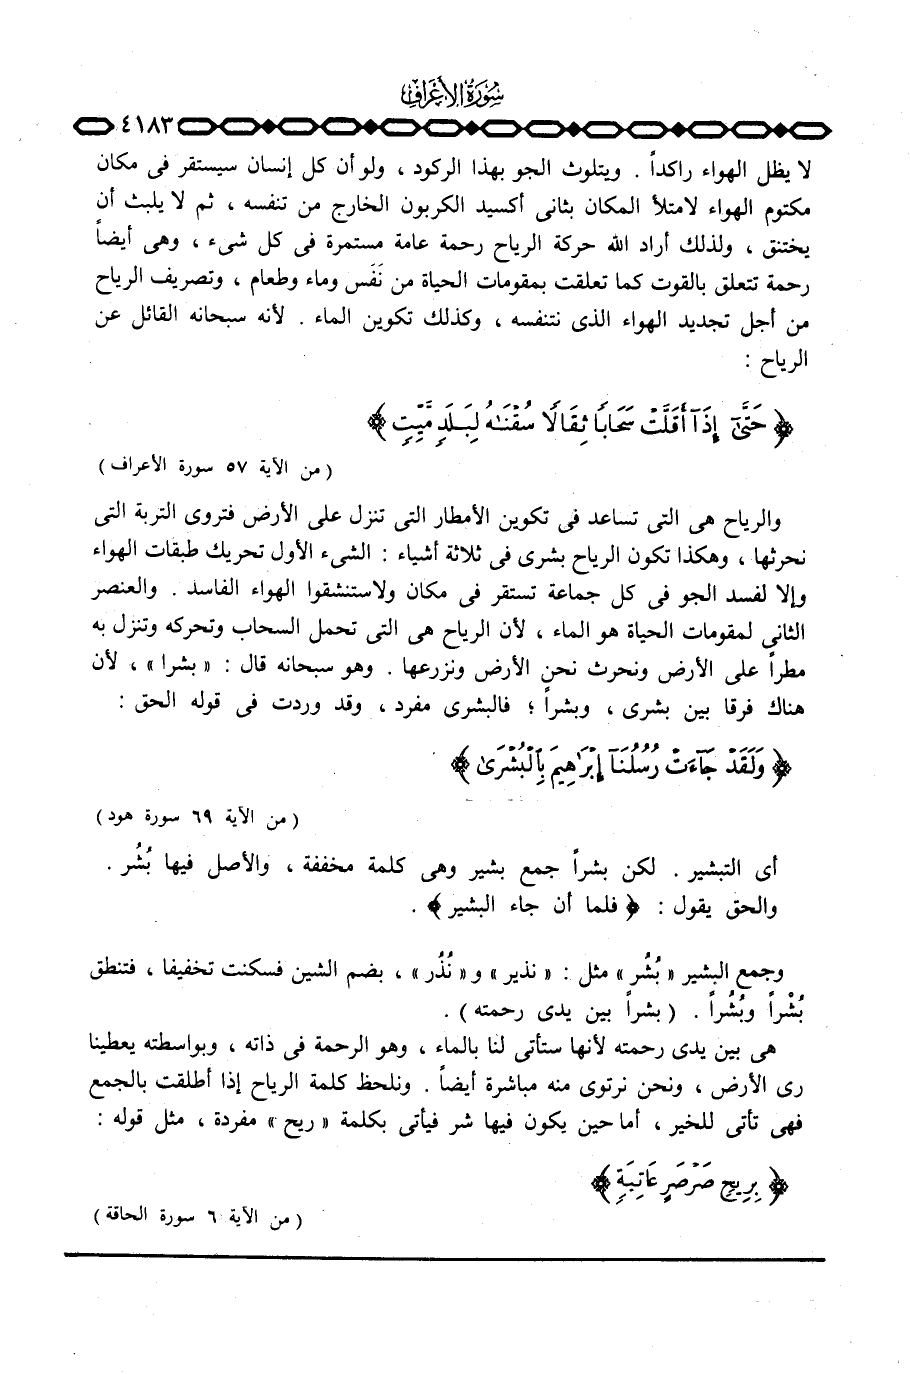 سورة الأعراف
٤١٨٣
لا يظل الهواء راكداً . ويتلوث الجو بهذا الركود ، ولو أن كل إنسان سيستقر فى مكان
مكتوم الهواء لامتلأ المكان بثانى أكسيد الكربون الخارج من تنفسه ، ثم لا يلبث أن
يختنق ، ولذلك أراد الله حركة الرياح رحمة عامة مستمرة فى كل شىء ، وهى أيضاً
رحمة تتعلق بالقوت كما تعلقت بمقومات الحياة من نَفَس وماء وطعام ، وتصريف الرياح
من أجل تجديد الهواء الذى نتنفسه ، وكذلك تكوين الماء . لأنه سبحانه القائل عن
الرياح :
﴿ حَتَّىٰٓ إِذَآ أَقَلَّتْ سَحَابًا ثِقَالًا سُقْنَـٰهُ لِبَلَدٍ مَّيِّتٍ ﴾
( من الآية ٥٧ سورة الأعراف )
والرياح هى التى تساعد فى تكوين الأمطار التى تنزل على الأرض فتروى التربة التى
نحرثها ، وهكذا تكون الرياح بشرى فى ثلاثة أشياء : الشىء الأول تحريك طبقات الهواء
وإلا لفسد الجو فى كل جماعة تستقر فى مكان ولاستنشقوا الهواء الفاسد . والعنصر
الثانى لمقومات الحياة هو الماء ، لأن الرياح هى التى تحمل السحاب وتحركه وتنزل به
مطراً على الأرض ونحرث نحن الأرض ونزرعها . وهو سبحانه قال : « بشرا » ، لأن
هناك فرقا بين بشرى ، وبشراً ؛ فالبشرى مفرد ، وقد وردت فى قوله الحق :
﴿ وَلَقَدْ جَآءَتْ رُسُلُنَآ إِبْرَٰهِيمَ بِٱلْبُشْرَىٰ ﴾
( من الآية ٦٩ سورة هود )
أى التبشير . لكن بشراً جمع بشير وهى كلمة مخففة ، والأصل فيها بُشُر .
والحق يقول : ﴿ فلما أن جاء البشير ﴾ .
وجمع البشير « بُشُر » مثل : « نذير » و« نُذُر » ، بضم الشين فسكنت تخفيفا ، فتنطق
بُشْراً وبُشُراً . ( بشراً بين يدى رحمته ) .
هى بين يدى رحمته لأنها ستأتى لنا بالماء ، وهو الرحمة فى ذاته ، وبواسطته يعطينا
رى الأرض ، ونحن نرتوى منه مباشرة أيضاً . ونلحظ كلمة الرياح إذا أطلقت بالجمع
فهى تأتى للخير ، أما حين يكون فيها شر فيأتى بكلمة « ريح » مفردة ، مثل قوله :
﴿ بِرِيحٍ صَرْصَرٍ عَاتِيَةٍ ﴾
( من الآية ٦ سورة الحاقة )